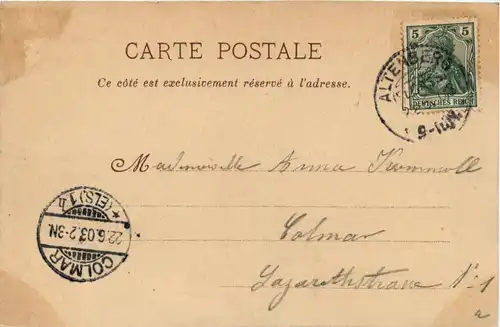 CARTE POSTALE
5 5
DEUTSCHES REICH
ALTENBERG
9-10V.
Ce côté est exclusivement réservé à l'adresse.
Mademoiselle Anna
Colmar
Lazarethstrasse N° 1
*(ELS)1*
22.6.03.2-3N.
COLMAR